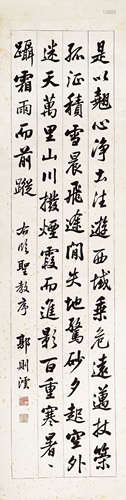 是以翹心淨土法遊西域乘危遠邁杖策
孤征積雪晨飛途間失地驚砂夕起空外
迷天萬里山川撥煙霞而進影百重寒暑
躡霜雨而前蹤
右臨聖教序 郭則澐